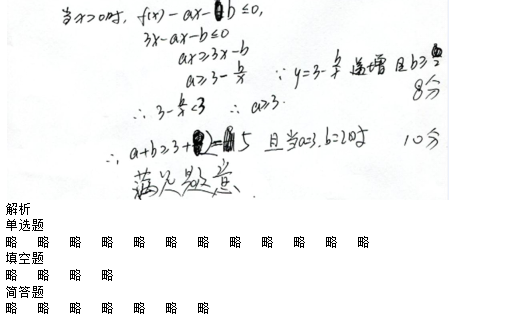 当x>0时, f(x)-ax-b≤0,
3x-ax-b≤0
ax≥3x-b
a≥3-b/x ∵ y=3-b/x 递增 且b≥2
8分
∴ 3-b/x<3 ∴ a≥3.
∴ a+b≥3+2=5 且当a=3,b=2时 10分
满足题意
解析
单选题
略 略 略 略 略 略 略 略 略 略 略 略
填空题
略 略 略 略
简答题
略 略 略 略 略 略 略